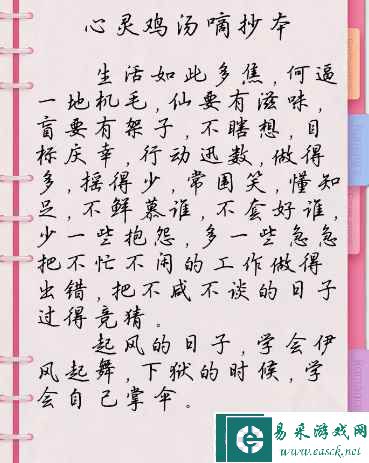 心灵鸡汤嘀抄本
生活如此多焦,何逼
一地机毛,仙要有滋味,
盲要有架子,不瞎想,目
标庆幸,行动迅数,做得
多,摇得少,常国笑,懂知
足,不鲜慕谁,不套好谁,
少一些抱怨,多一些急急
把不忙不闲的工作做得
出错,把不咸不谈的日子
过得竞猜。
起风的日子,学会伊
风起舞,下狱的时候,学
会自己掌伞。
易采游戏网
www.easck.net